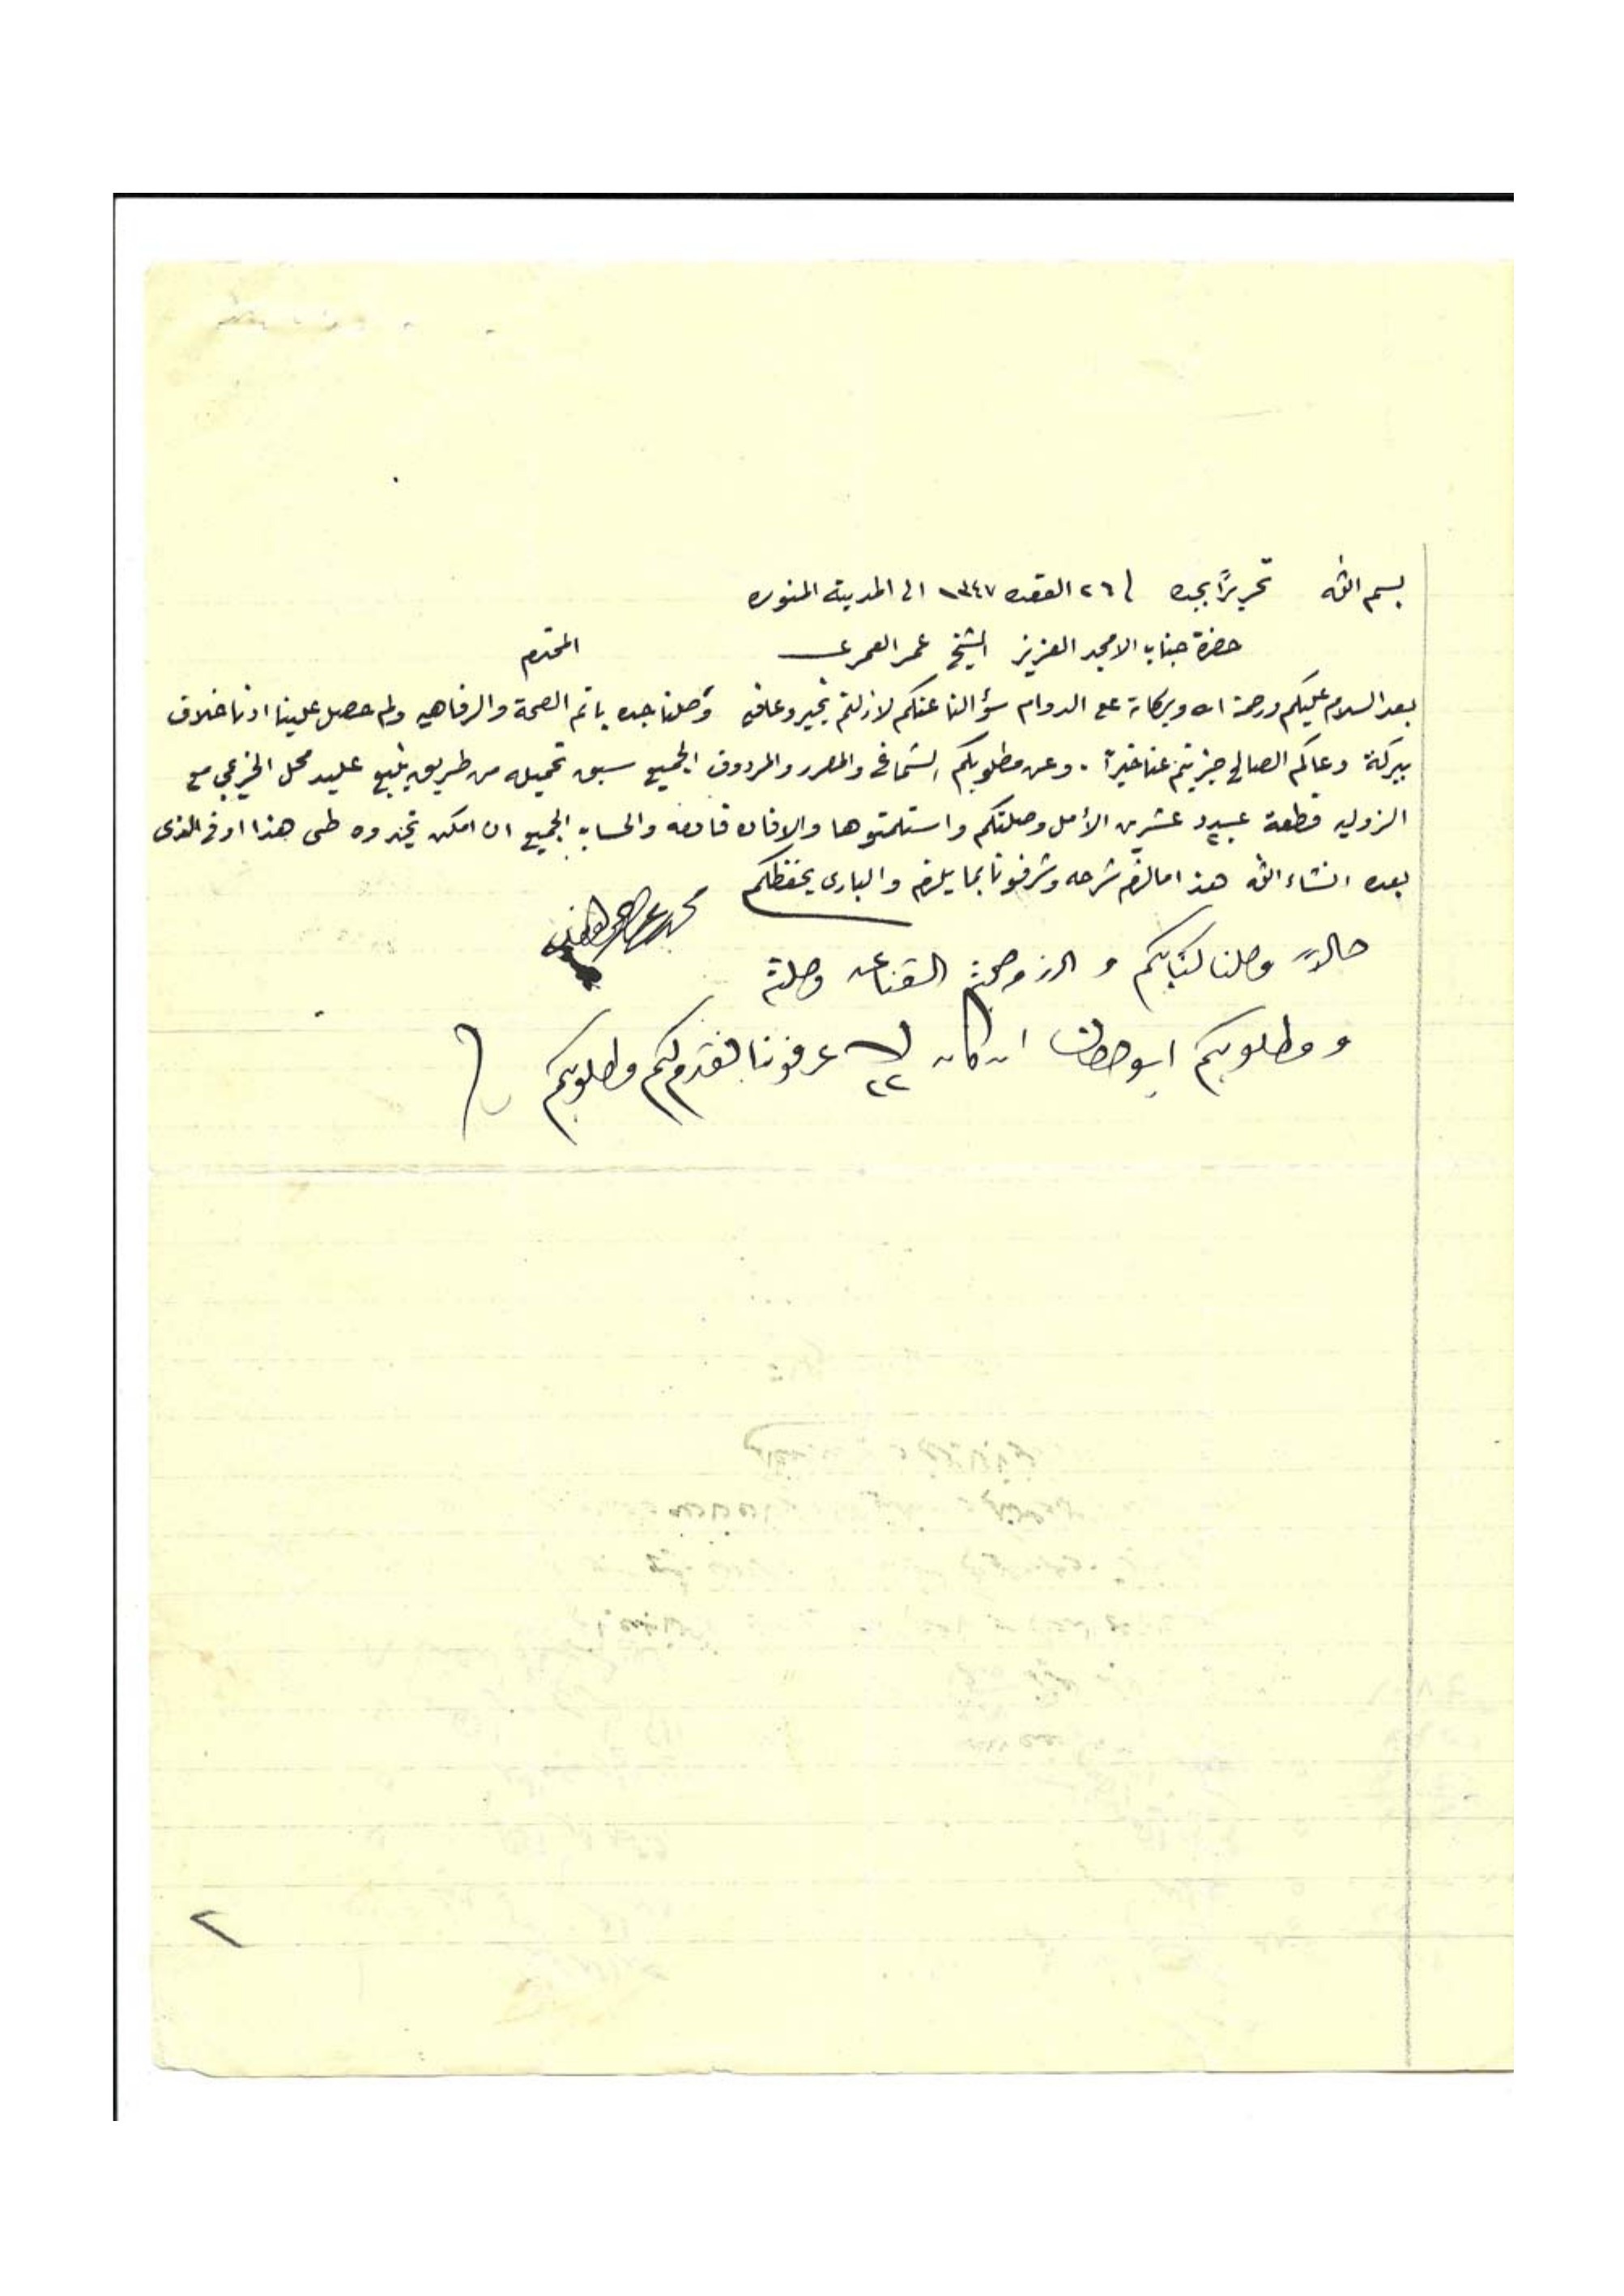 بسم الله تحريرًا بجده في ٢٦ القعده ١٣٤٧ الى المدينة المنوره
حضرة جناب الامجد العزيز الشيخ عمر العمري المحترم
بعد السلام عليكم ورحمة الله وبركاته على الدوام سؤالنا عنكم لازلتم بخير وعافيه وصلنا جده باتم الصحة والرفاهيه ولم حصل علينا ادنا خلاف
ببركة دعاكم الصالح جزيتم عنا خيرًا . وعن مطلوبكم الشماغ والمصرر والمردوف الجميع سبق تحميله من طريق ينبع عليد محل الخزعي مع
الزوليه قطعة عدد عشرين الأمل وصلتكم واستلمتوها والافان قادمه والحساب الجميع ان امكن تجدوه طى هذا اوفى الذى
بعده انشاء الله هذا مالزم شرحه وشرفونا بما يلزم والبارى يحفظكم
محمد
حالاً وصلنا كتابكم و الرز وصلت
ومطلوبكم ابو ان كان ٢٢ عرفونا نقدم لكم مطلوبكم
٢